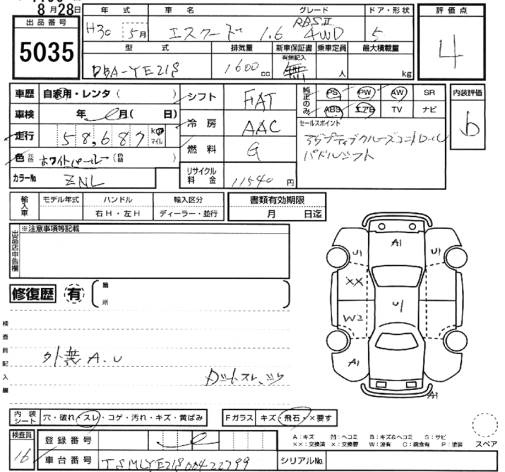 8月28日
出品番号
5035
年式 グレード ドア・形状
H30 5月 エスクード 1.6 4WD 5
型式 排気量 新車保証書 乗車定員 最大積載量
有無記入
DBA-YE21S 1600 cc 無 人 kg
評価点
4
車歴 自家用・レンタ( )
車検 年 月( 日)
走行 58,687 km マイル
色 元色 ホワイトパール (色替)
カラーNo ZNL
シフト FAT
冷房 AAC
燃料 G
リサイクル料金 11540 円
純正のみ PS PW AW SR
ABS エアB TV ナビ
セールスポイント
アダプティブクルーズコントロール
パドルシフト
内装評価
b
輸入車 モデル年式 ハンドル 輸入区分
右H・左H ディーラー・並行
書類有効期限
月 日迄
出品店申告欄 ※注意事項等記載
修復歴 有 箇所
検査員記入欄
外無 A.U
A1
U1 U1
XX
U
W2
A1 A1
内装シート 穴・破れ・スレ・コゲ・汚れ・キズ・黄ばみ
Fガラス キズ・飛石・X要す
検査員
16
登録番号
車台番号 TSMLYE21S00422799
シリアルNo.
A：キズ M：ヘコミ B：キズ&ヘコミ S：サビ
XX：交換済 X：要交換 W：波有 C：腐食有 P：塗装
スペア